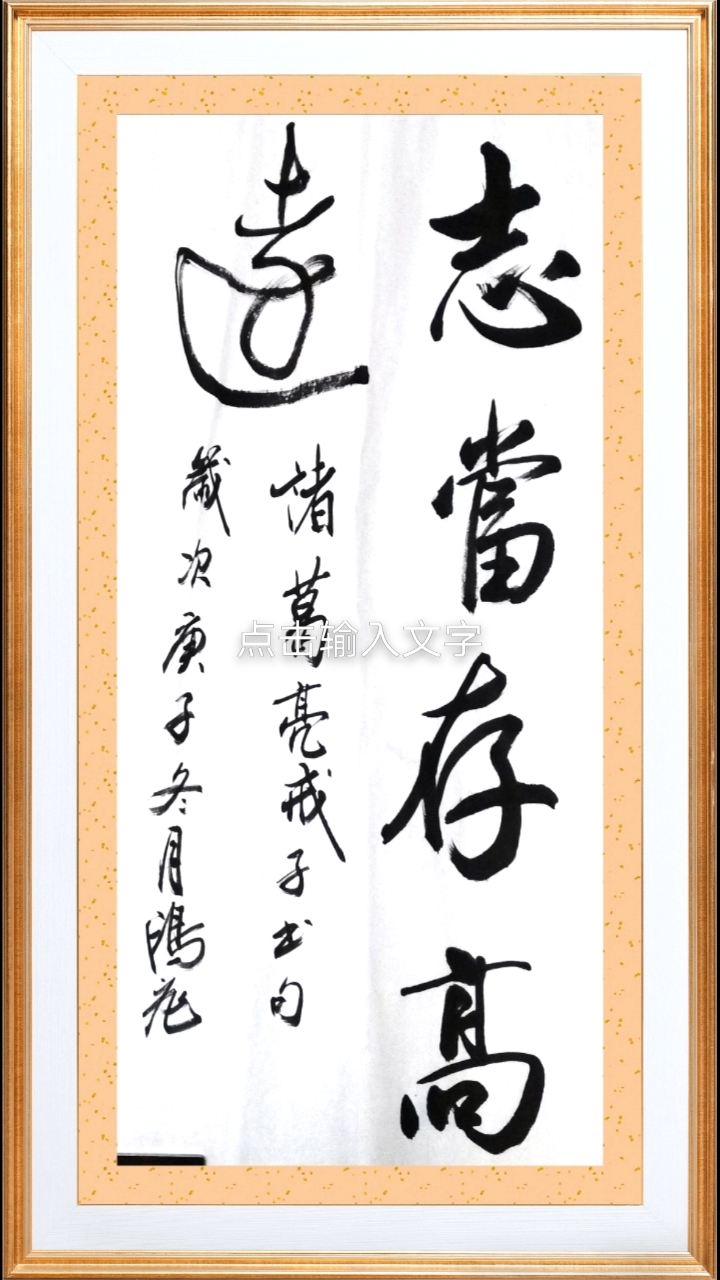 志當存高
遠
諸葛亮戒子书句
歲次庚子冬月鴻苑
点击输入文字